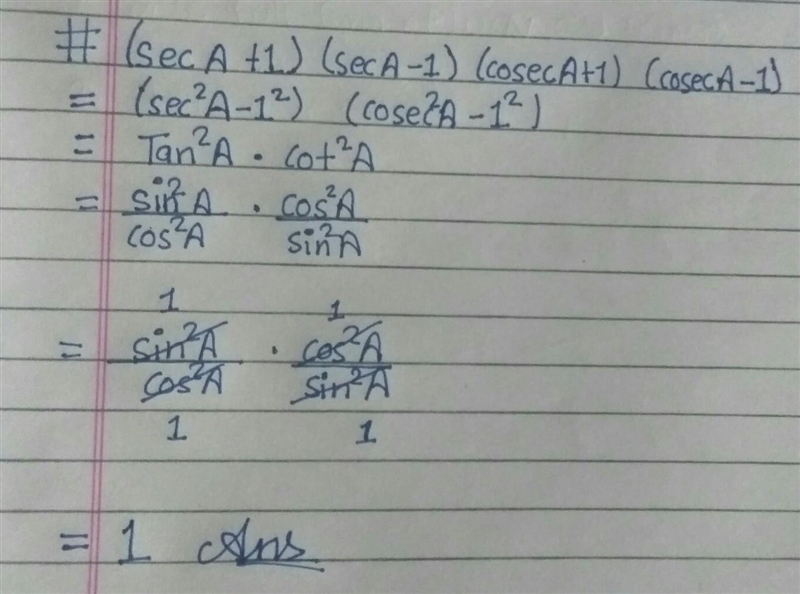 # (sec A +1) (sec A -1) (cosec A+1) (cosec A -1)
= (sec²A - 1²) (cosec²A - 1²)
= Tan²A · cot²A
= sin²A/cos²A · cos²A/sin²A
1 1
= sin²A/cos²A · cos²A/sin²A
1 1
= 1 Ans